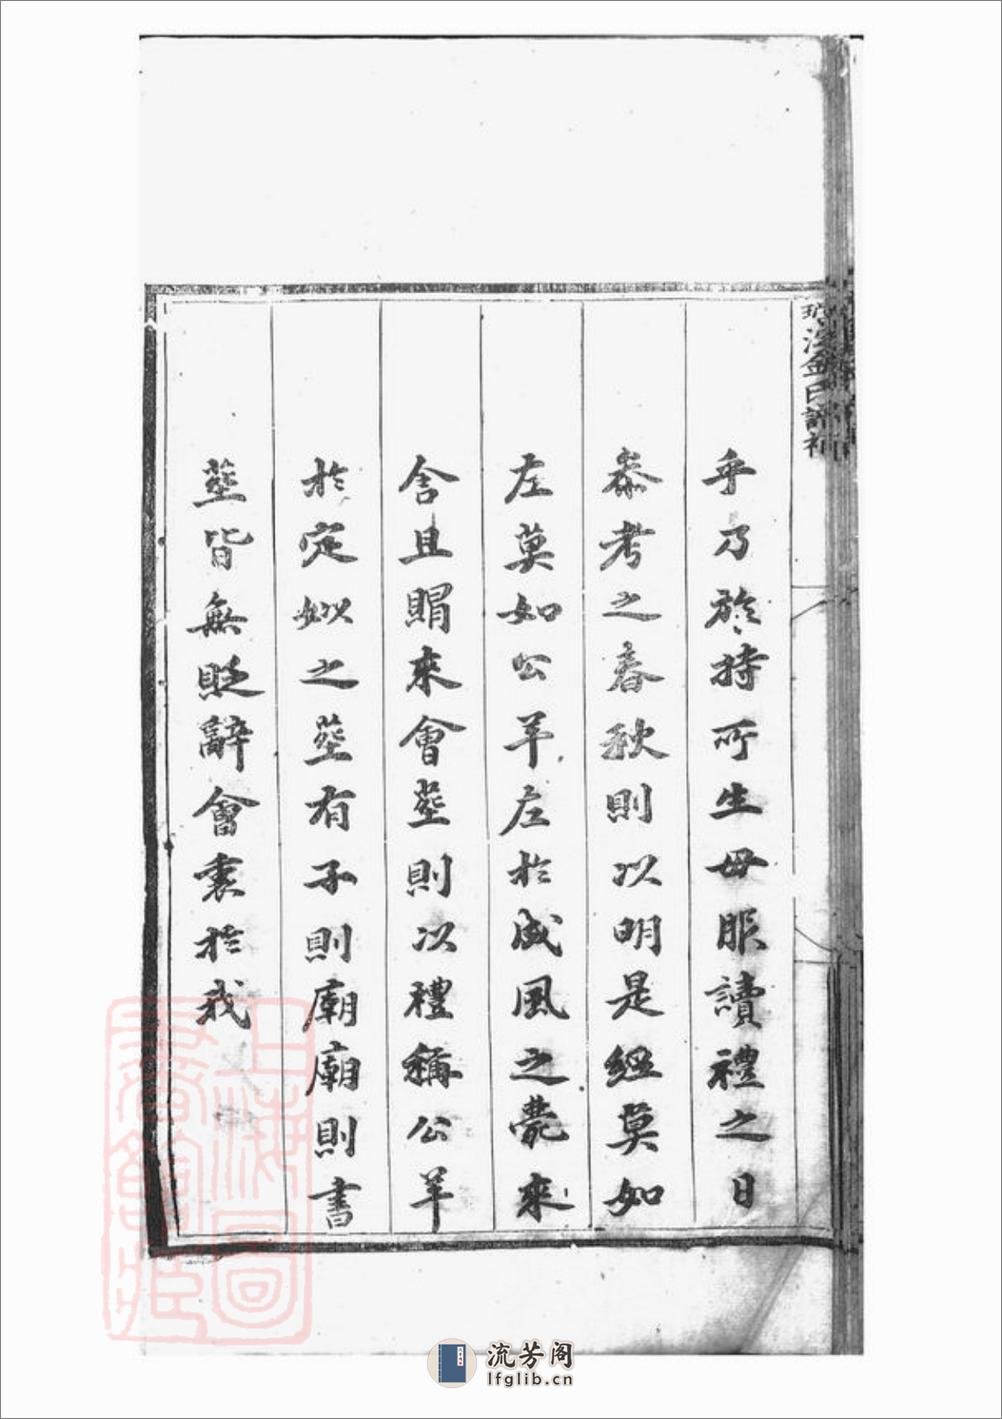 乎乃於持所生母服讀禮之日
泰考之春秋則以明是經莫如
左莫如公羊左於成風之薨來
含且賵來會塟則以禮稱公羊
於定姒之塟有子則廟廟則書
塟皆無貶辭會衷於我
金氏譜
流芳阁
lfglib.cn